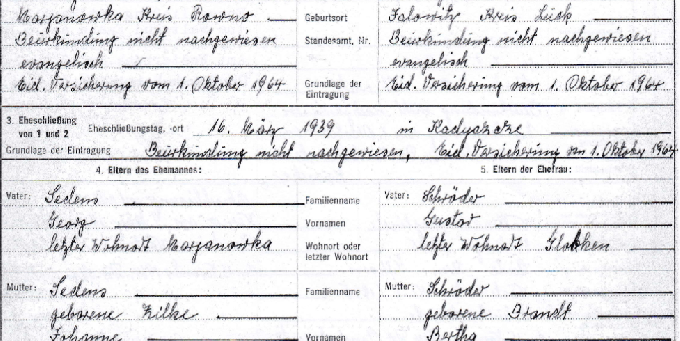 Marjanowka Kreis Rowno Geburtsort Jalowitz Kreis Luck
Beurkundung nicht nachgewiesen Standesamt, Nr. Beurkundung nicht nachgewiesen
evangelisch evangelisch
Eid. Versicherung vom 1. Oktober 1964 Grundlage der Eintragung Eid. Versicherung vom 1. Oktober 1964
3. Eheschließung von 1 und 2 Eheschließungstag, -ort 16. März 1939 in
Grundlage der Eintragung Beurkundung nicht nachgewiesen, Eid. Versicherung vom 1. Oktober 1964
4. Eltern des Ehemannes: 5. Eltern der Ehefrau:
Vater: Sedens Familienname Vater: Schröder
Georg Vornamen Gustav
letzter Wohnort Marjanowka Wohnort oder letzter Wohnort letzter Wohnort
Mutter: Sedens Familienname Mutter: Schröder
geborene Zilke geborene Brandt
Johanne Vornamen Bertha